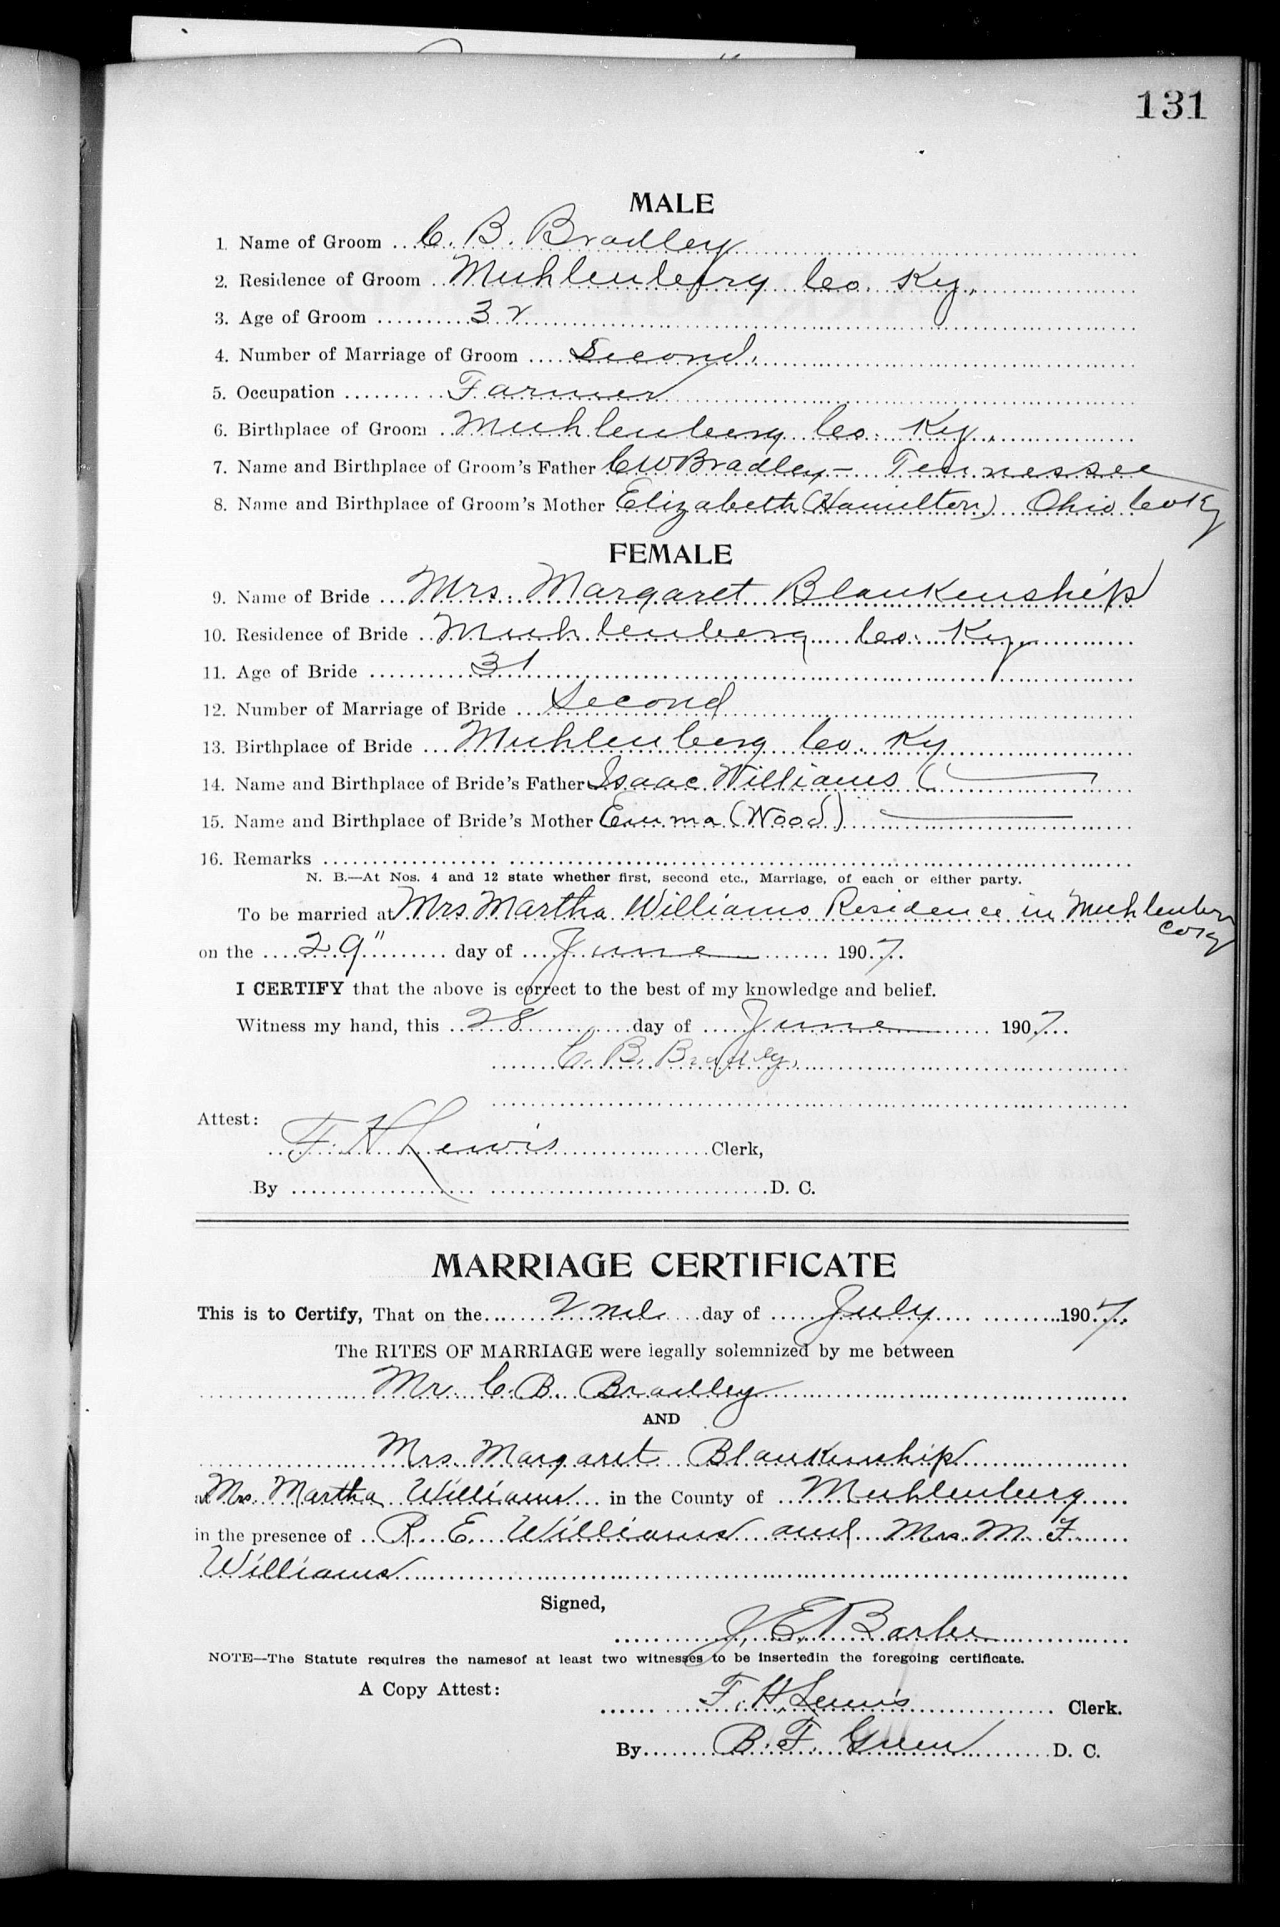 131
MALE
1. Name of Groom C. B. Bradley
2. Residence of Groom Muhlenberg Co. Ky.
3. Age of Groom 32
4. Number of Marriage of Groom Second.
5. Occupation Farmer
6. Birthplace of Groom Muhlenberg Co. Ky.
7. Name and Birthplace of Groom's Father C W Bradley - Tennessee
8. Name and Birthplace of Groom's Mother Elizabeth (Hamilton) Ohio Co Ky
FEMALE
9. Name of Bride Mrs. Margaret Blankenship
10. Residence of Bride Muhlenberg Co. Ky.
11. Age of Bride 31
12. Number of Marriage of Bride Second
13. Birthplace of Bride Muhlenberg Co. Ky
14. Name and Birthplace of Bride's Father Isaac Williams (
15. Name and Birthplace of Bride's Mother Emma (Wood)
16. Remarks
N. B.—At Nos. 4 and 12 state whether first, second etc., Marriage, of each or either party.
To be married at Mrs. Martha Williams Residence in Muhlenberg
Co Ky
on the 29" day of June 1907.
I CERTIFY that the above is correct to the best of my knowledge and belief.
Witness my hand, this 28 day of June 1907.
C. B. Bradley.
Attest:
F. H. Lewis Clerk,
By D. C.
MARRIAGE CERTIFICATE
This is to Certify, That on the 2nd day of July 1907.
The RITES OF MARRIAGE were legally solemnized by me between
Mr. C. B. Bradley
AND
Mrs. Margaret Blankenship
at Mrs. Martha Williams in the County of Muhlenburg
in the presence of R. E. Williams and Mrs. M. F.
Williams
Signed,
J. E. Barbe
NOTE—The Statute requires the namesof at least two witnesses to be insertedin the foregoing certificate.
A Copy Attest:
F. H. Lewis Clerk.
By B. F. Green D. C.